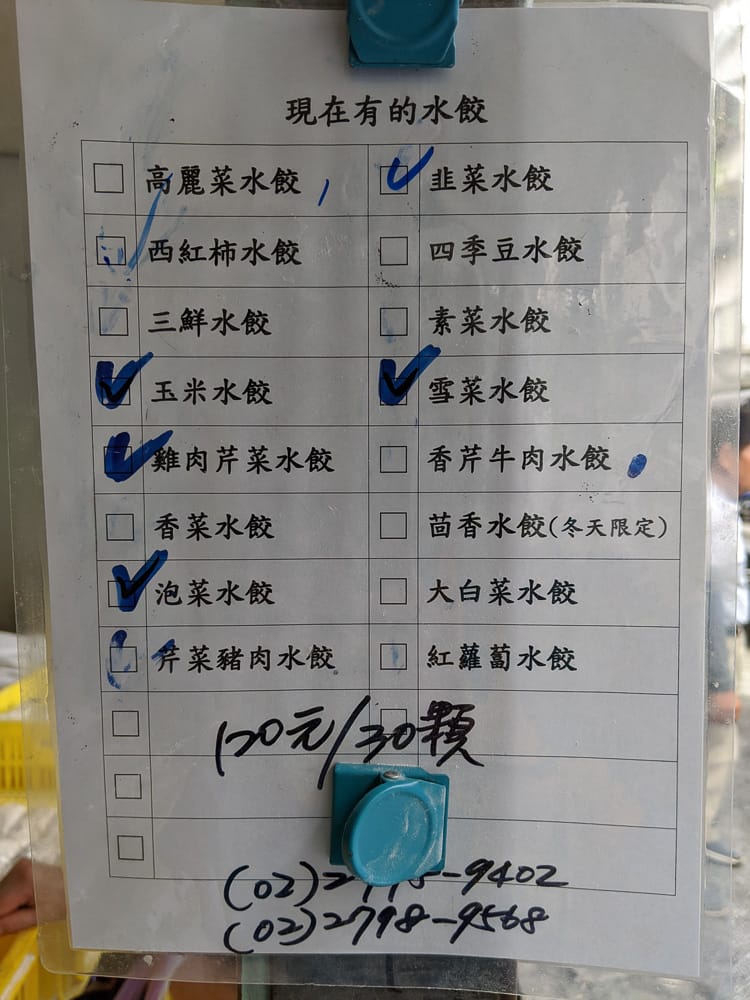 現在有的水餃
高麗菜水餃
韭菜水餃
西紅柿水餃
四季豆水餃
三鮮水餃
素菜水餃
玉米水餃
雪菜水餃
雞肉芹菜水餃
香芹牛肉水餃
香菜水餃
茴香水餃(冬天限定)
泡菜水餃
大白菜水餃
芹菜豬肉水餃
紅蘿蔔水餃
120元/30顆
(02) -9402
(02)2798-9568